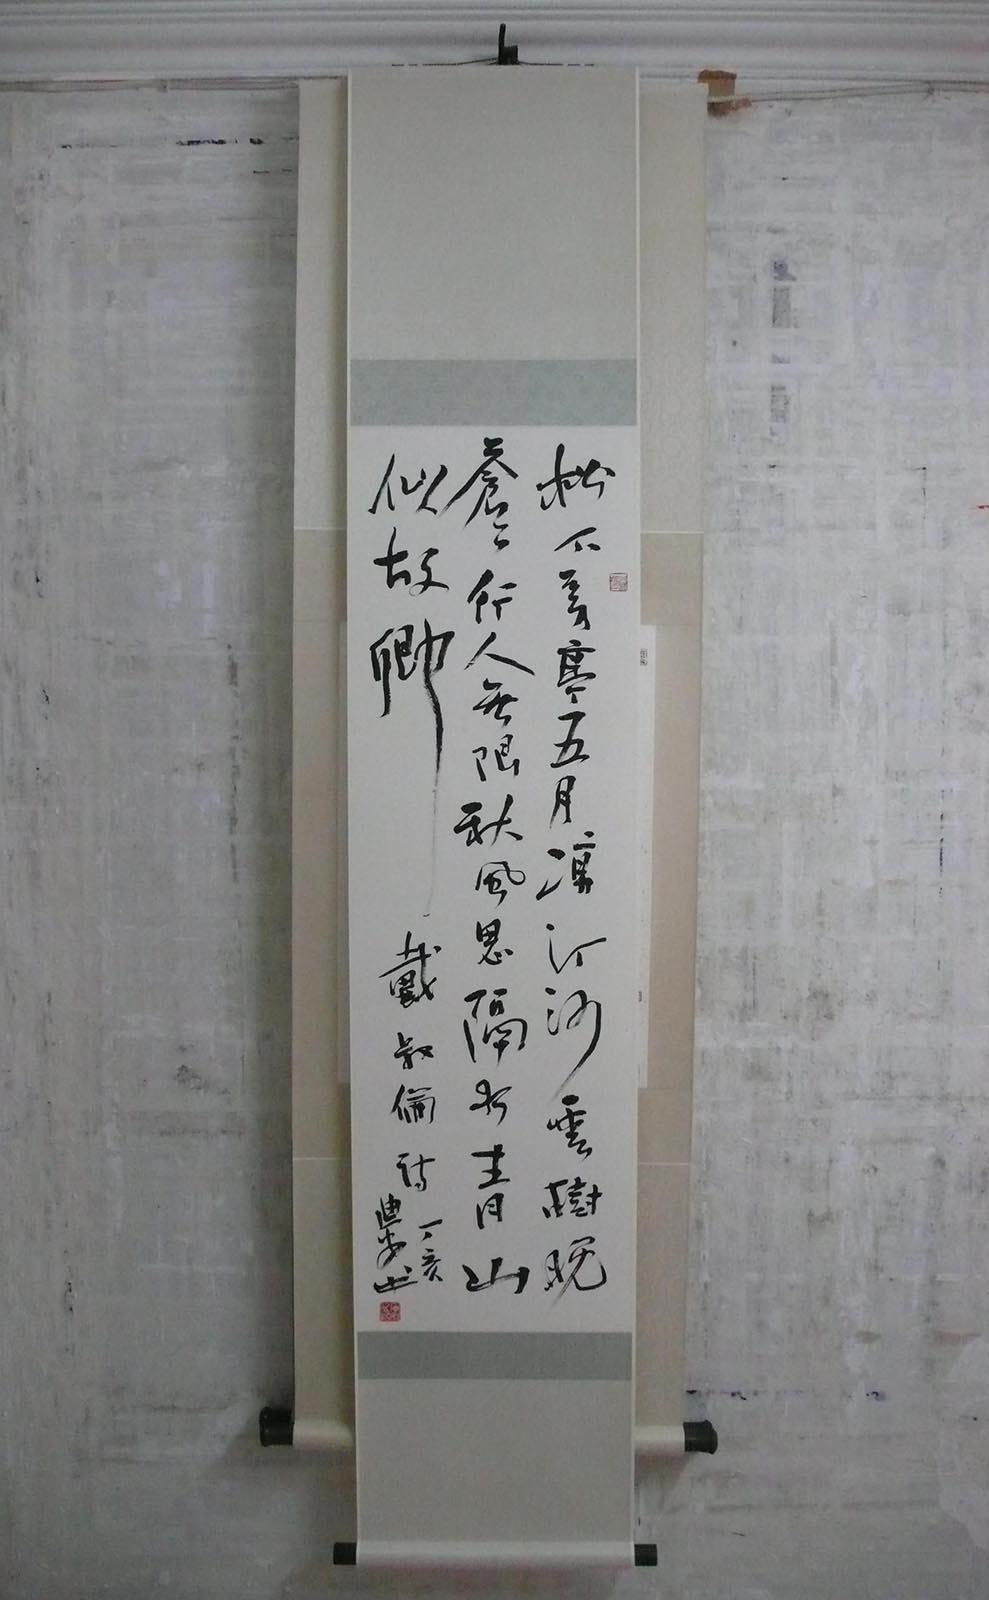 松下茅亭五月凉汀沙雲樹晚
蒼々行人無限秋風思隔水青山
似故鄉
戴叔倫詩
丁亥